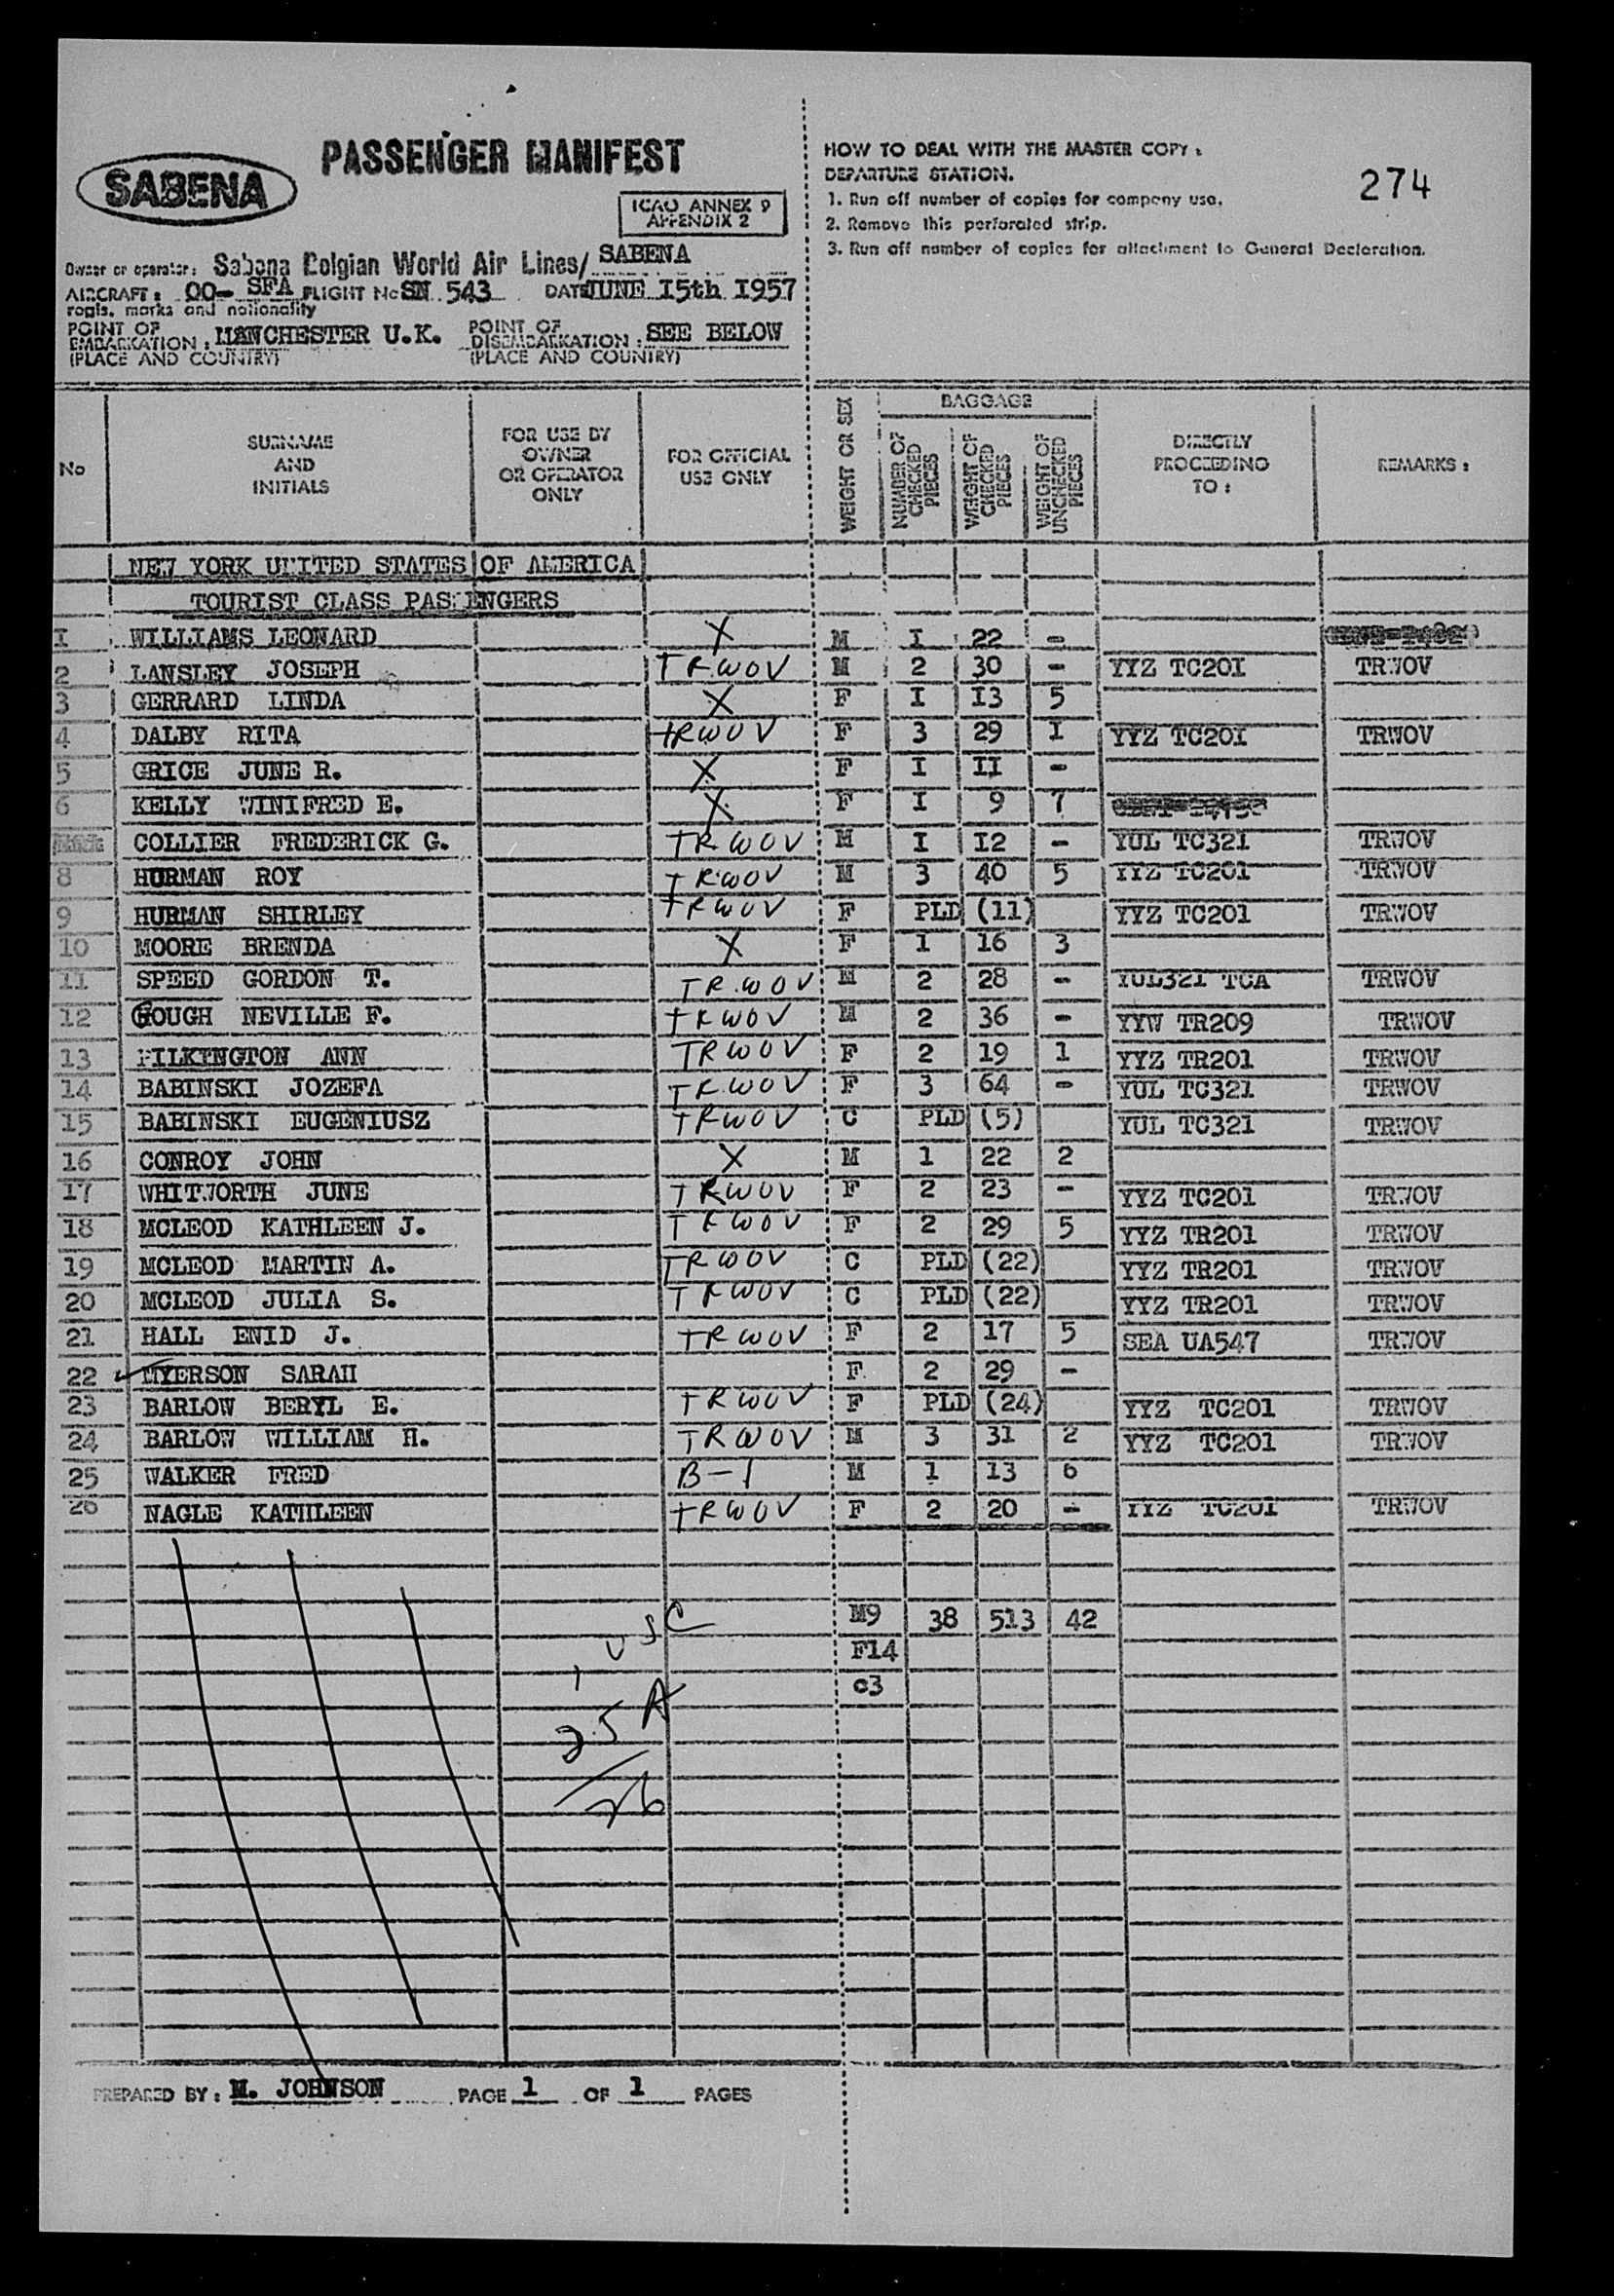 PASSENGER MANIFEST
SABENA
ICAO ANNEX 9
APPENDIX 2
HOW TO DEAL WITH THE MASTER COPY :
DEPARTURE STATION.
1. Run off number of copies for company use.
2. Remove this perforated strip.
3. Run off number of copies for attachment to General Declaration.
274
Owner or operator: Sabena Belgian World Air Lines/ SABENA
AIRCRAFT: OO- SFA FLIGHT No SN 543 DATE JUNE I5th I957
regis. marks and nationality
POINT OF EMBARKATION : MANCHESTER U.K. POINT OF DISEMBARKATION : SEE BELOW
(PLACE AND COUNTRY) (PLACE AND COUNTRY)
No SURNAME AND INITIALS FOR USE BY OWNER OR OPERATOR ONLY FOR OFFICIAL USE ONLY WEIGHT OR SEX BAGGAGE NUMBER OF CHECKED PIECES WEIGHT OF CHECKED PIECES WEIGHT OF UNCHECKED PIECES DIRECTLY PROCEEDING TO : REMARKS :
NEW YORK UNITED STATES OF AMERICA
TOURIST CLASS PASSENGERS
I WILLIAMS LEONARD X M I 22 -
2 LANSLEY JOSEPH TRWOV M 2 30 - YYZ TC20I TRWOV
3 GERRARD LINDA X F I I3 5
4 DALBY RITA TRWOV F 3 29 I YYZ TC20I TRWOV
5 GRICE JUNE R. X F I II -
6 KELLY WINIFRED E. X F I 9 7
COLLIER FREDERICK G. TRWOV M I I2 - YUL TC321 TRWOV
8 HURMAN ROY TRWOV M 3 40 5 YYZ TC201 TRWOV
9 HURMAN SHIRLEY TRWOV F PLD (11) YYZ TC201 TRWOV
10 MOORE BRENDA X F 1 16 3
11 SPEED GORDON T. TRWOV M 2 28 - YUL321 TCA TRWOV
12 GOUGH NEVILLE F. TRWOV M 2 36 - YYW TR209 TRWOV
13 PILKINGTON ANN TRWOV F 2 19 1 YYZ TR201 TRWOV
14 BABINSKI JOZEFA TRWOV F 3 64 - YUL TC321 TRWOV
15 BABINSKI EUGENIUSZ TRWOV C PLD (5) YUL TC321 TRWOV
16 CONROY JOHN X M 1 22 2
17 WHITWORTH JUNE TRWOV F 2 23 - YYZ TC201 TRWOV
18 MCLEOD KATHLEEN J. TRWOV F 2 29 5 YYZ TR201 TRWOV
19 MCLEOD MARTIN A. TRWOV C PLD (22) YYZ TR201 TRWOV
20 MCLEOD JULIA S. TRWOV C PLD (22) YYZ TR201 TRWOV
21 HALL ENID J. TRWOV F 2 17 5 SEA UA547 TRWOV
22 MYERSON SARAH F 2 29 -
23 BARLOW BERYL E. TRWOV F PLD (24) YYZ TC201 TRWOV
24 BARLOW WILLIAM H. TRWOV M 3 31 2 YYZ TC201 TRWOV
25 WALKER FRED B-1 M 1 13 6
26 NAGLE KATHLEEN TRWOV F 2 20 - YYZ TC201 TRWOV
M9 38 513 42
1 USC
F14
c3
25 A
26
PREPARED BY : M. JOHNSON PAGE 1 OF 1 PAGES